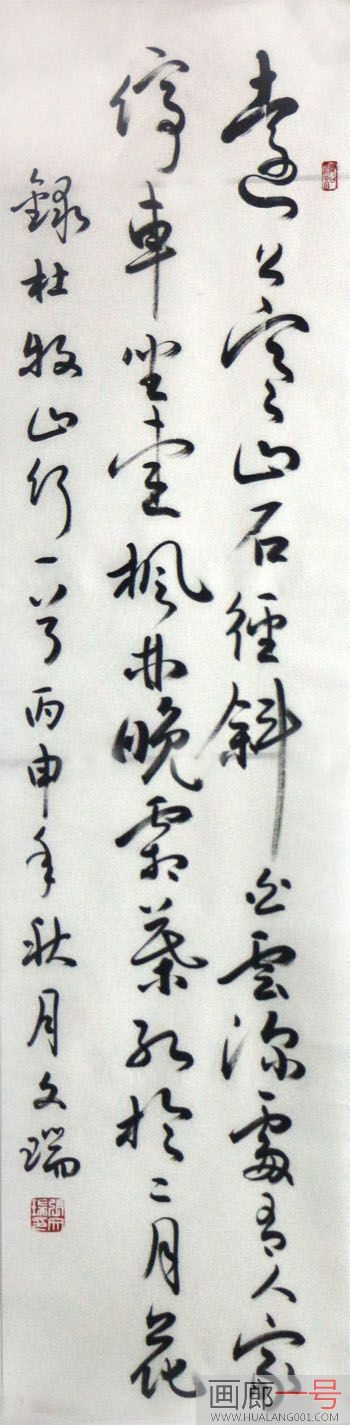 遠上寒山石徑斜白雲深處有人家
停車坐愛楓林晚霜葉紅於二月花
錄杜牧山行一首丙申年秋月文瑞
画廊一号
WWW.HUALANG001.COM